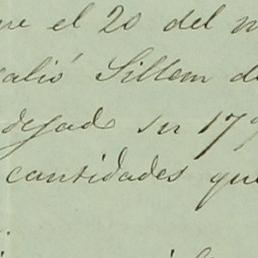 el 20 del
alió Sillem d
dejado su 179
cantidades que